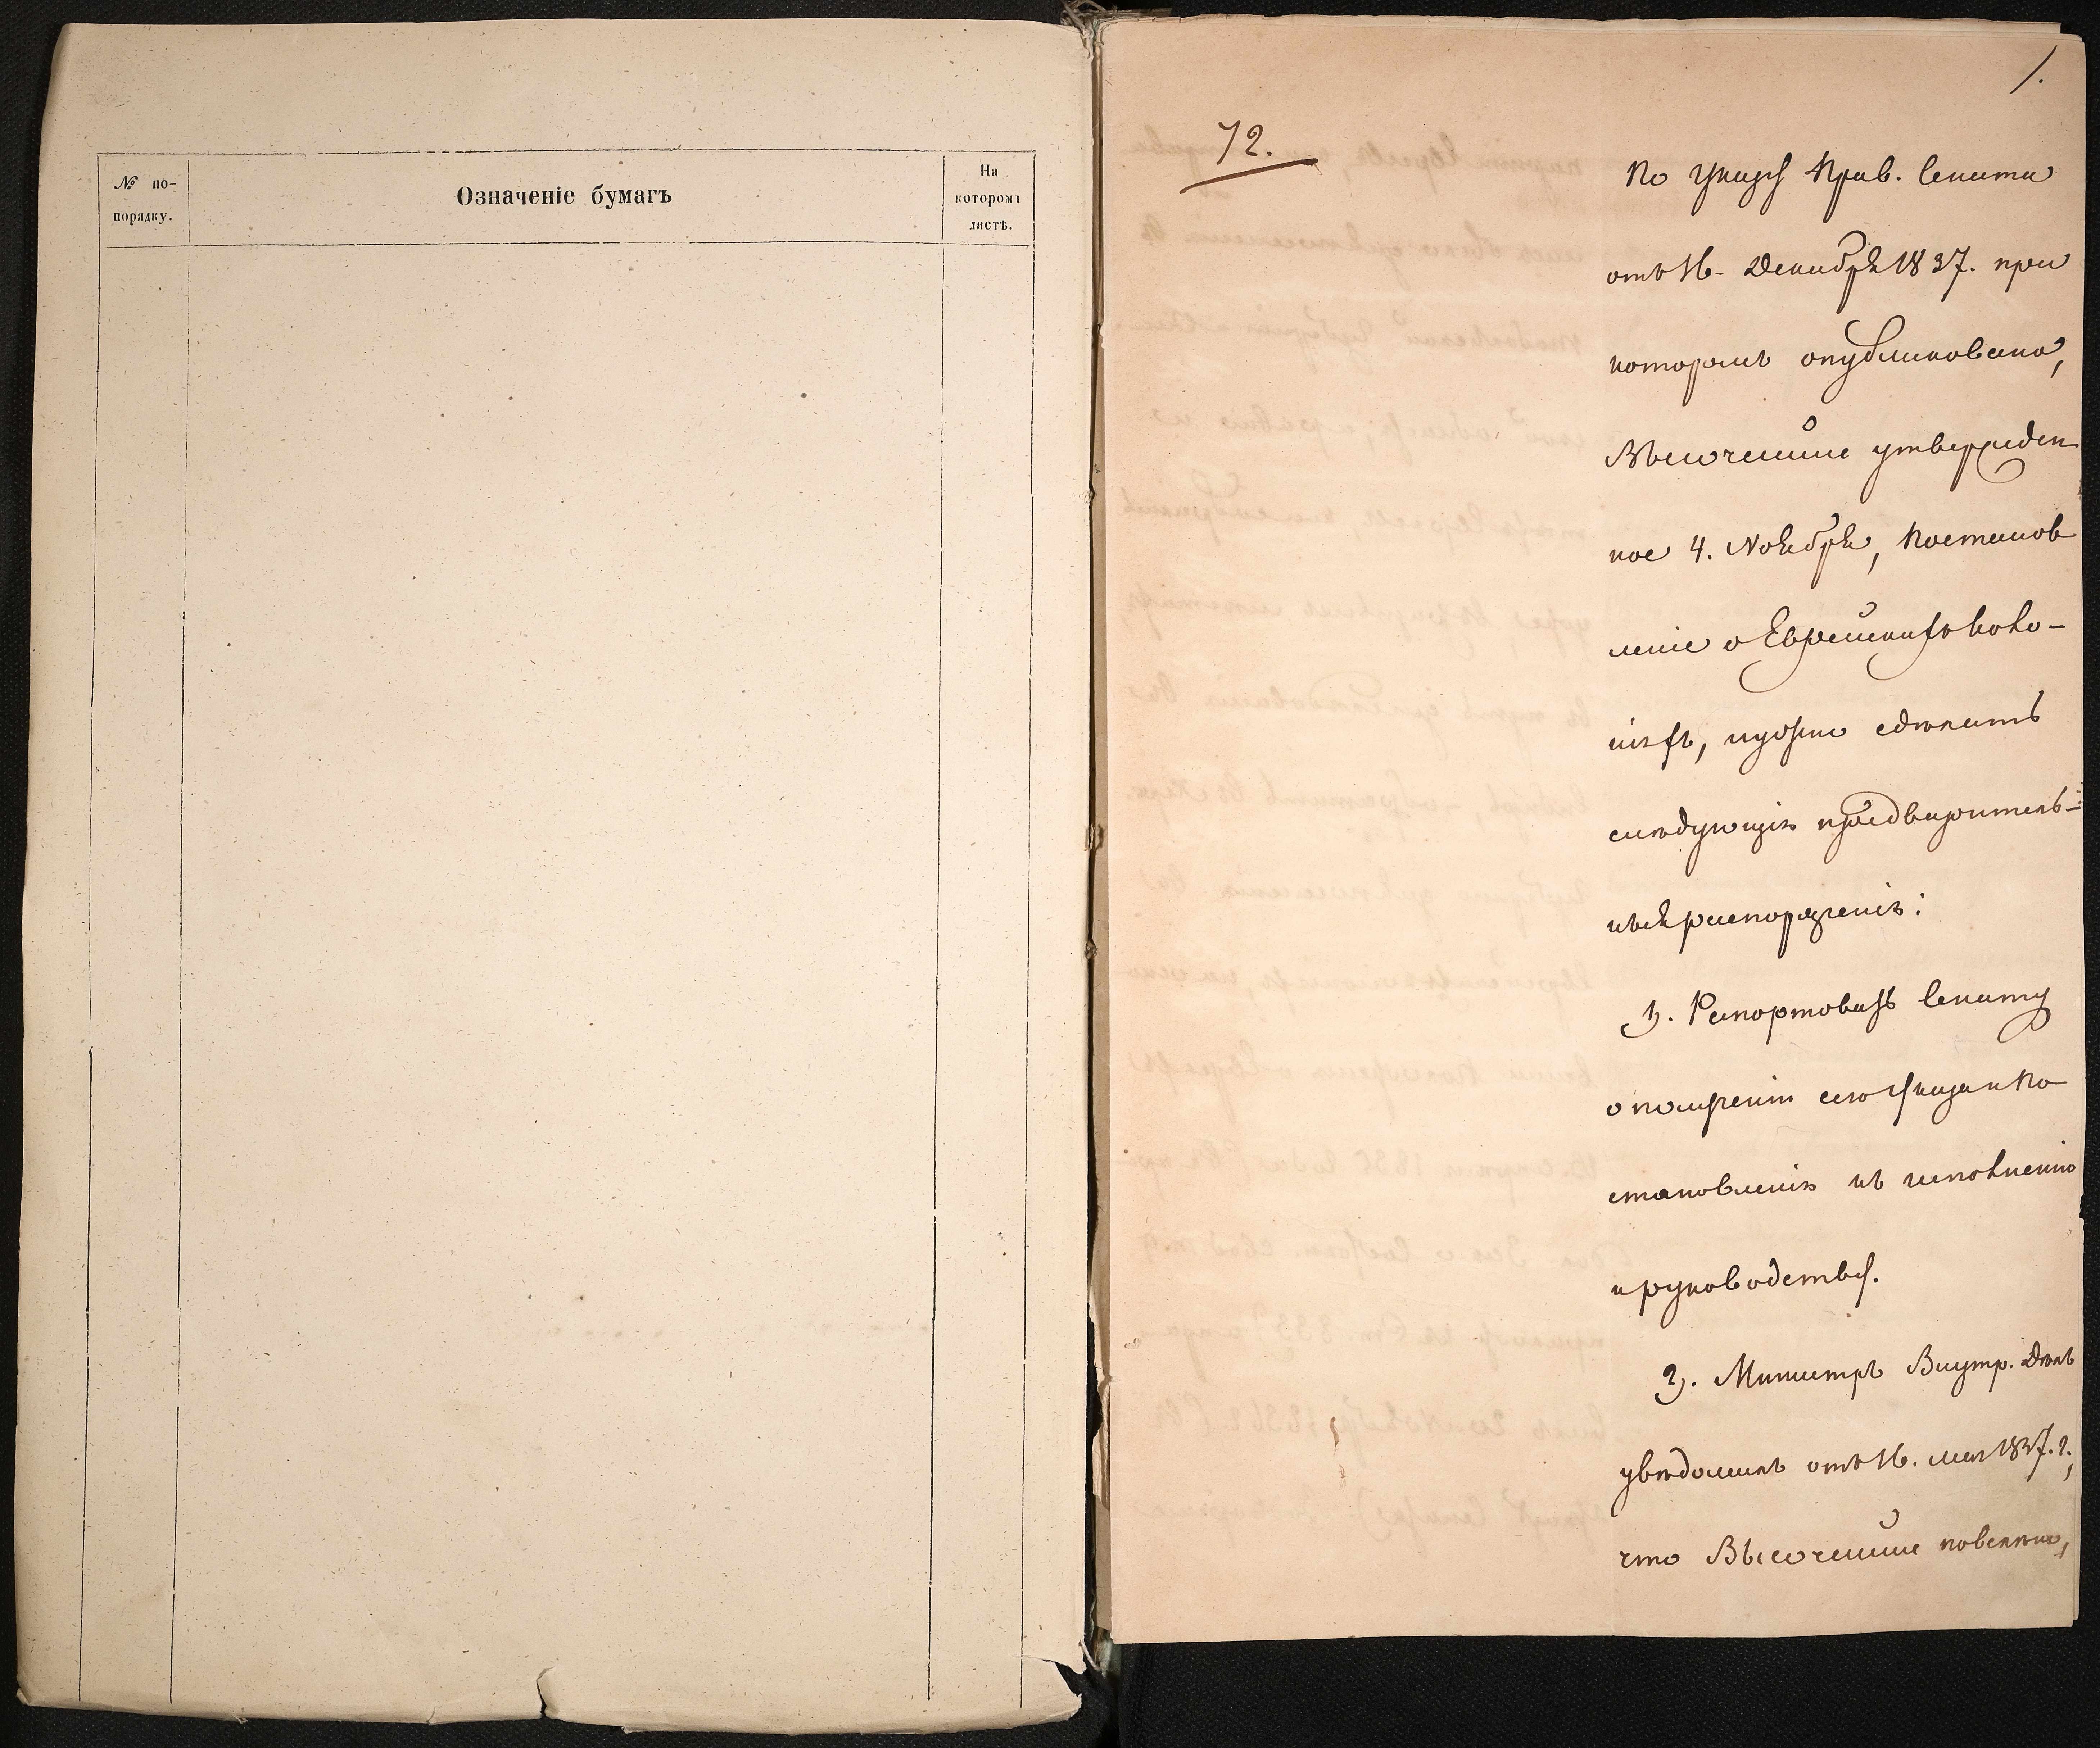 № по-
порядку.
Означеніе бумагъ
На
которомъ
листѣ.
1.
72.
По Указу Прав. Сената
отъ 16. Декабря 1837. при
которомъ опубликовано,
Высочайше утвержден
ное 4. Ноября, Постанов
леніе о Еврейскихъ Коло-
ніяхъ, нужно сдѣлать
слѣдующія предваритель-
ныя распоряженія:
1). Рапортовать Сенату
о полученіи сего Указа и По
становленія къ исполненію
и руководству.
2). Министръ Внутр. Дѣлъ
увѣдомилъ отъ 16. мая 1837. г.,
что Высочайше повелѣно,